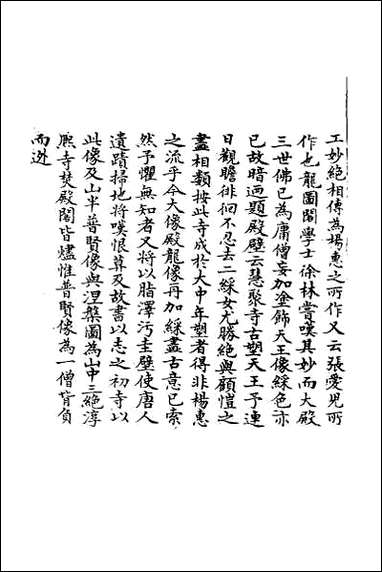 工妙絕相傳為楊惠之所作又云張愛児所
作也龍圖閣學士徐林嘗嘆其妙而大殿
三世佛已為庸僧妄加塗飾天王像綵色亦
已故暗迺題殿壁云慧聚寺古塑天王予連
日觀瞻徘徊不忍去二綵女尤勝絕與顧愷之
畫相類按此寺成於大中年塑者得非楊惠
之流乎今大像殿龍像再加綵畫古意已索
然予懼無知者又將以脂澤汚圭壁使唐人
遺蹟掃地將嘆恨莫及故書以志之初寺以
此像及山半普賢像與涅槃圖為山中三絕淳
熈寺焚殿閣皆燼惟普賢像為一僧背負
而迯